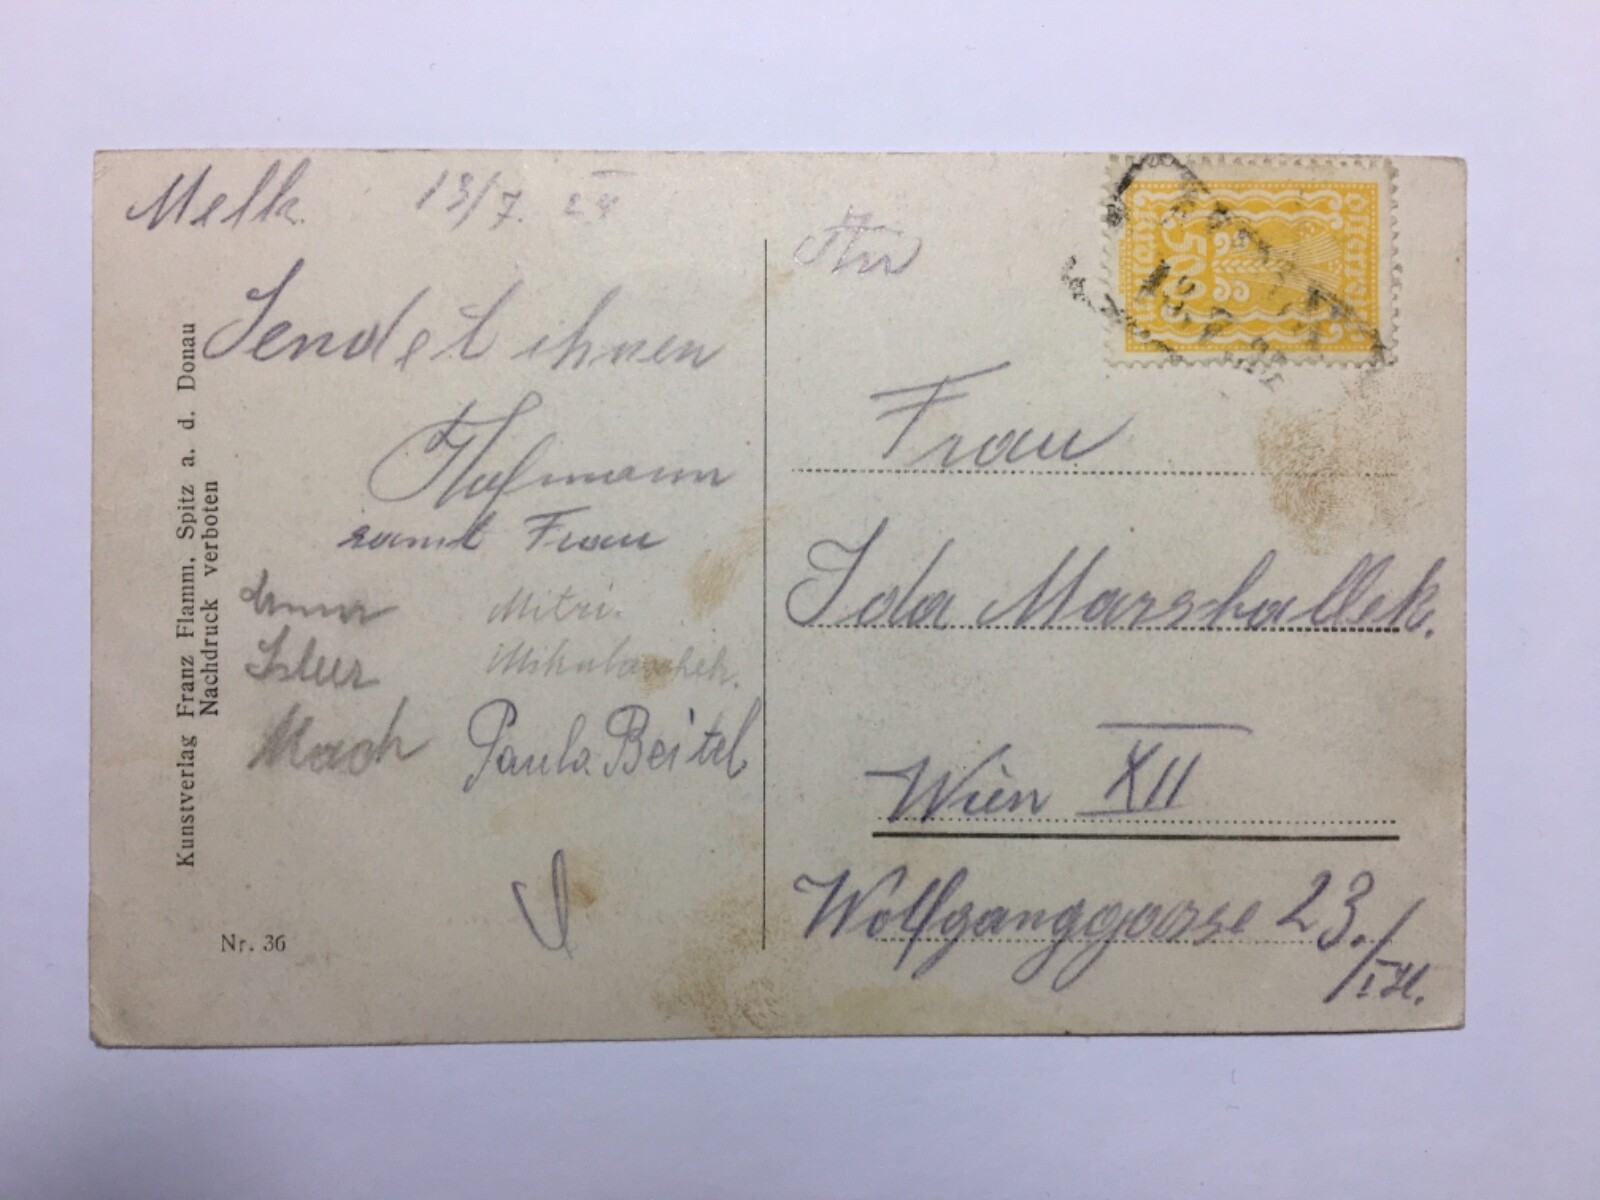 Melk 13/7. 24
Sendet ihnen
Hofmann
samt Frau
Mitzi.
Mach Paula Beitel
Kunstverlag Franz Flamm, Spitz a. d. Donau
Nachdruck verboten
Nr. 36
An
Österreich
500
Kronen
13.7.
Frau
Ida Marshallek.
Wien XII
Wolfganggasse 23./